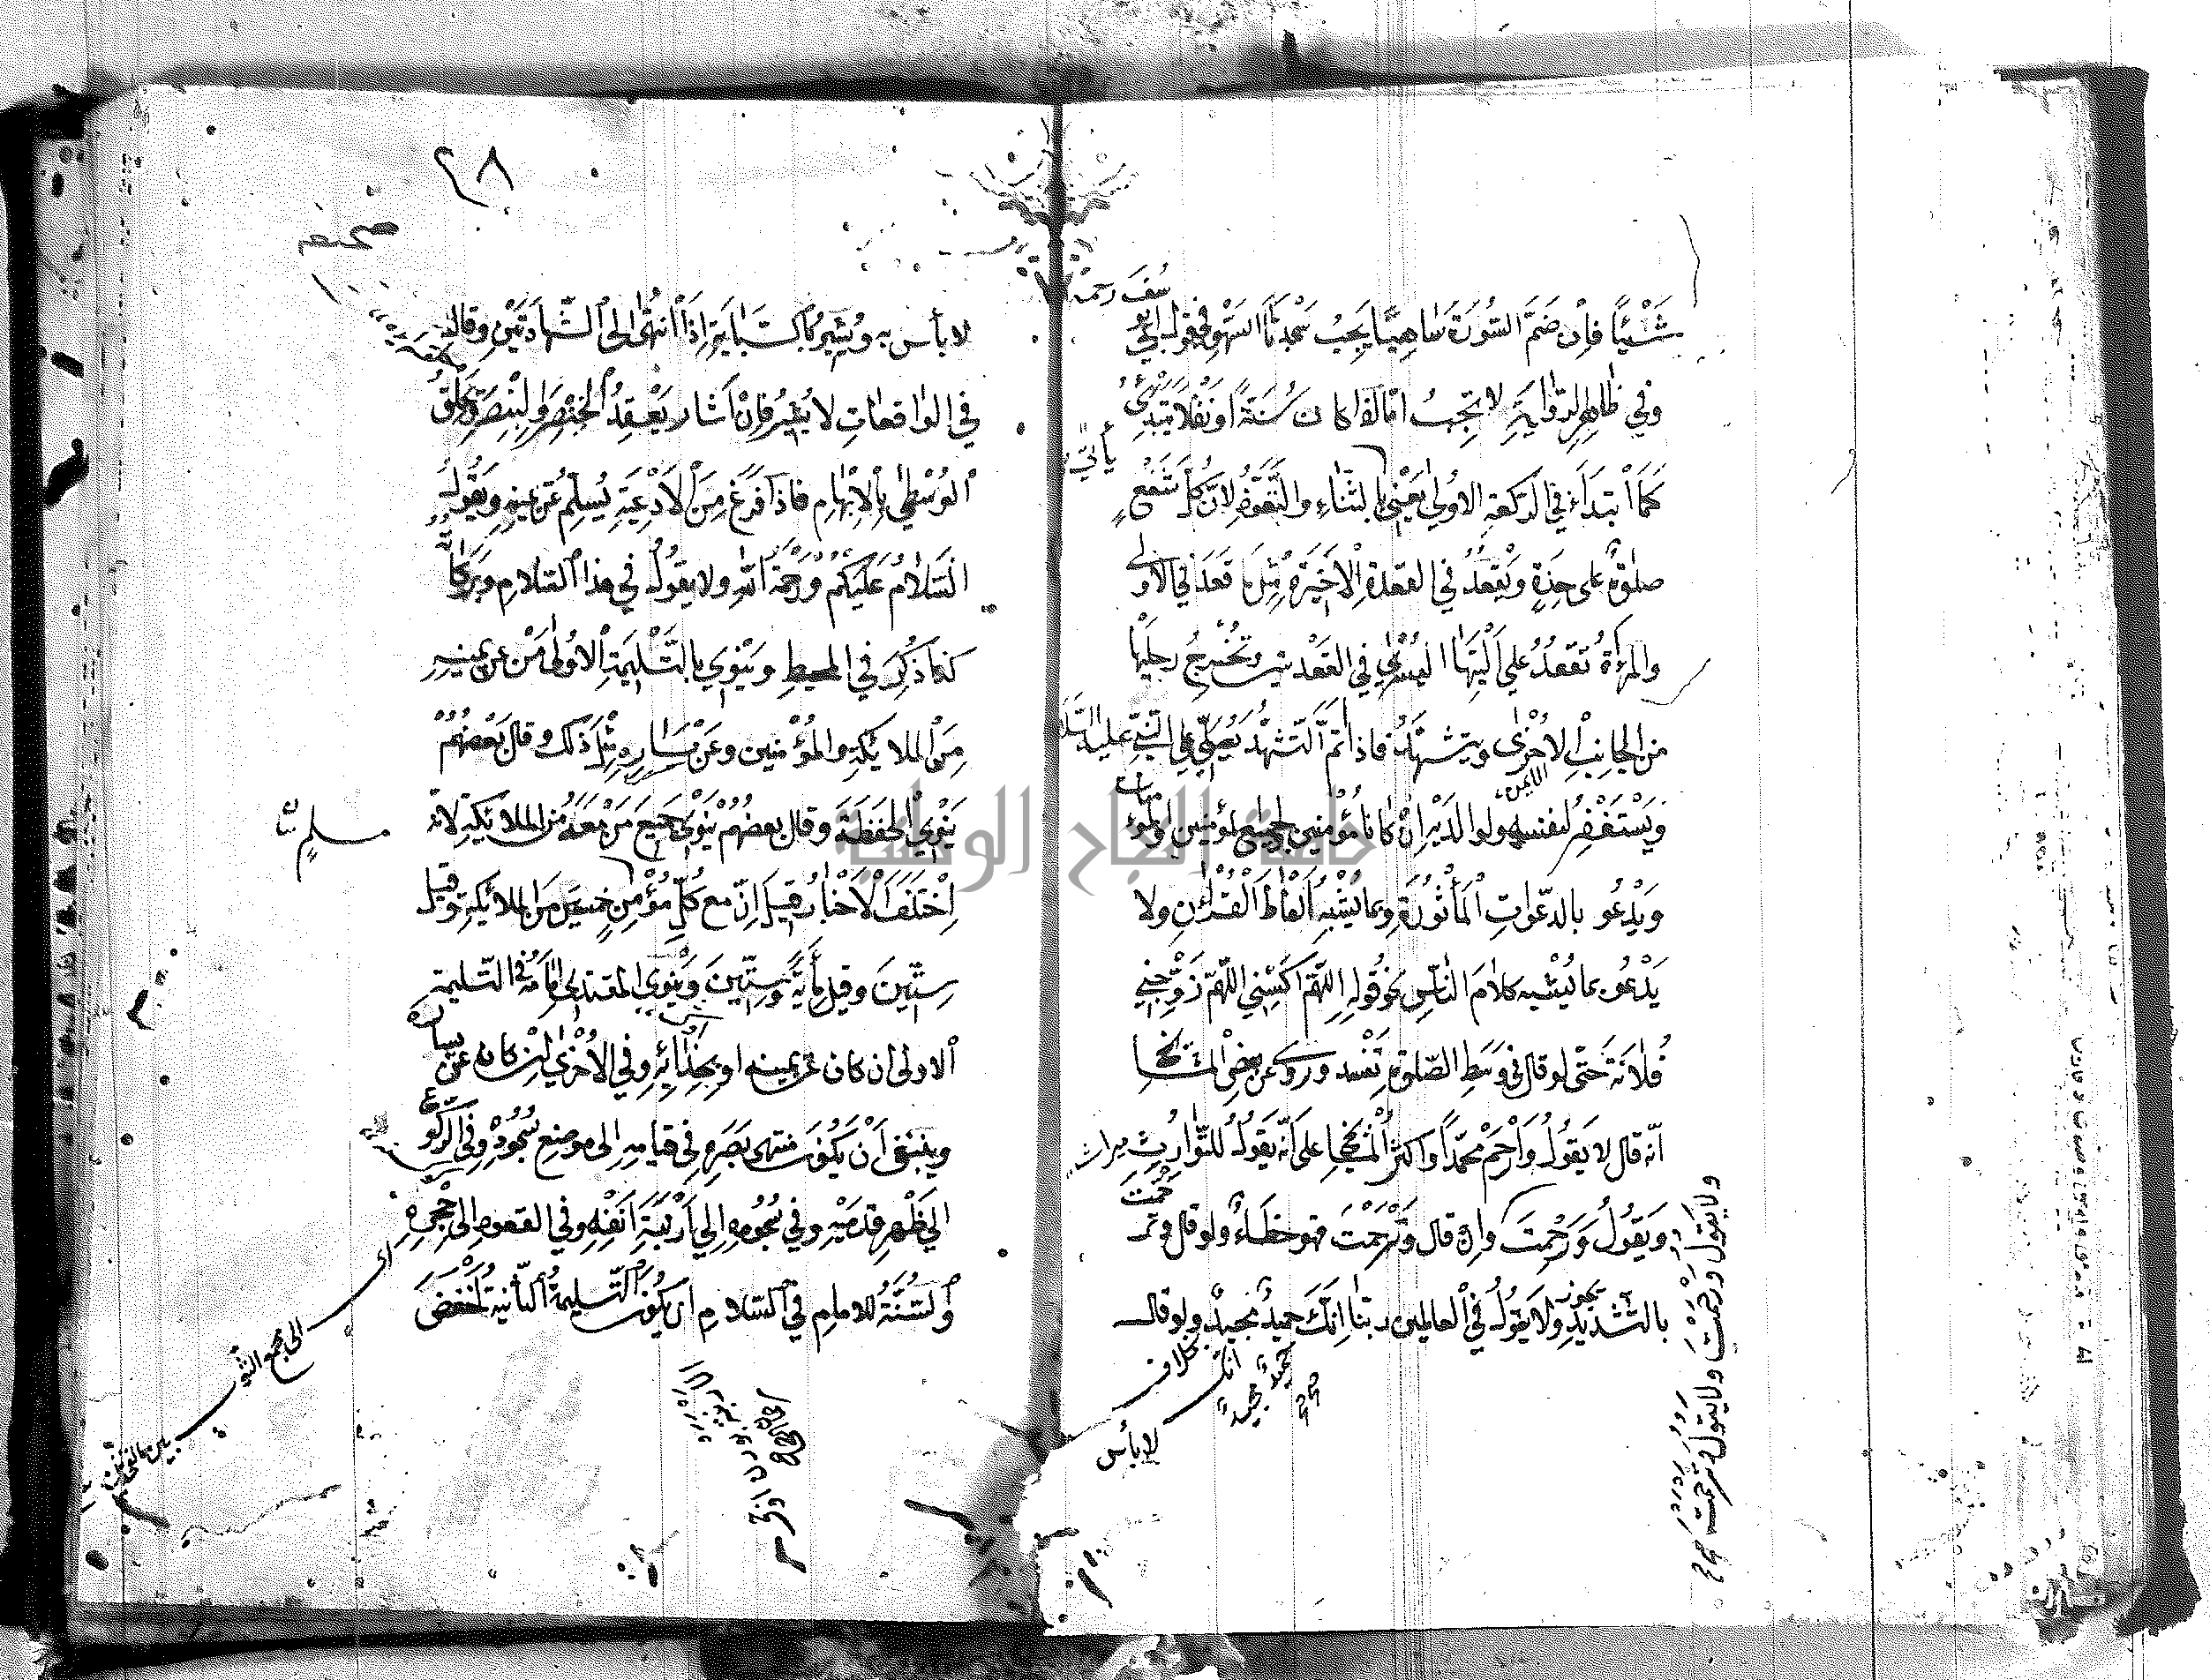 شَيْئًا فَاِنْ ضَمَّ السُّورَةَ سَاهِيًا يَجِبُ سَجْدَتَا السَّهْوِ فِي قول ابي
يوسف رحمه
وفي ظاهر الرّواية لا تجبُ امّا اذا كان سُنّةً او نَفْلًا يَبْتَدِئُ
كَمَا ابْتَدَاءَ في الرّكعة الاولى يعني يأتي بالثناءِ والتّعوّذ لانّ كلّ شَفْعٍ
صلوةٌ على حِدَةٍ ويَقْعُدُ في القعدة الاخيرة مِثلَ ما قعَدَ في الاولى
والمرأةُ تقعُدُ على اَلْيَتِهَا اليُسْرى في القعدتين وتُخْرِجُ رجلَيْها
من الجانبِ الاُخْرى ويتشهّدُ فاذا تَمَّ التّشهّدُ يُصَلّي على النّبيّ عليه السّلام
الايمن
ويَسْتَغْفِرُ لنفسه ولوالدَيْهِ اِنْ كانا مُؤمنين ولجميع المؤمنين والمؤمنات
ويَدْعُو بالدّعواتِ المأثُورَةِ وبما يُشْبِهُ اَلْفاظَ القُرْاٰنِ ولا
يَدْعُو بما يُشْبِه كلامَ النّاسِ نحوُ قوله اللّهمّ اكْسُني اللّهمّ زَوِّجْني
فُلانَةَ حَتّى لو قال في وَسَطِ الصّلوةِ تَفْسد وروى عن بعض المشايخ
انّه قال لا يَقُولُ وَارْحَمْ محمّدًا واكثرُ المشايخ على انّه يَقُولُ للتّوارُثِ
ويَقُولُ وَرَحِمْتَ وان قال وتَرَحَّمْتَ فهو خطاءٌ ولو قال وترحّمت
بالتّشديد يجوز ولا يقولُ في العالمين ربّنا اِنّكَ حميدٌ مجيدٌ ولو قال
انّك حميدٌ مجيدٌ
لا بأس
ولا يقول وارحمت ولا يقول وترحّمت
٢٨
صحيفه
لا بأس به ويُشيرُ بالسَّبّابةِ اِذَا انْتَهى الى الشّهادتَيْنِ وقال
في الواقعاتِ لا يُشيرُ فاِنْ اَشارَ يَعْقِدُ الخِنْصِرَ والبِنْصِرَ ويُحَلِّقُ
الوُسْطى بالاِبْهامِ فاذا فَرَغَ مِنَ الاَدْعِيَةِ يُسلِّمُ عن يمينه ويَقُولُ
السَّلامُ عَلَيْكُمْ وَرَحْمَةُ اللهِ ولا يقُولُ في هذا السّلامِ وبَرَكاتُه
كذا ذُكِرَ في المحيطِ ويَنْوي بالتّسليمةِ الاُولى مَنْ عن يمينه
مِنَ الملائكةِ والمؤمنين وعن يَسَارِهِ مِثْلَ ذلك وقال بعضُهُمْ
يَنْوي الحَفَظَةَ وقال بعضهُمْ يَنْوي جَميعَ مَنْ مَعَهُ من الملائكة لانّه
اِخْتَلَفَ الاَخْبارُ قيلَ اِنّ مع كُلِّ مُؤْمِنٍ خَمْسَةً مِنَ الملائكةِ وقيل
سِتّينَ وقيل مِأيةً وسِتّينَ ويَنْوي المقتدى اِمَامَهُ في التّسليمة
الاولى ان كان عن يمينه او بِحِذائِهِ وفي الاُخْرى ان كان عن يساره
وينبغي اَنْ يَكُونَ منتهى بَصَرِهِ في قيامه اِلى موضع سُجُودِه وفي الرّكوع
الى ظَهْرِ قدمَيْهِ وفي سُجُودِهِ اِلى اَرْنَبَةِ اَنْفِهِ وفي القعود الى حِجْرِهِ
والسُّنَّةُ للامامِ في السّلامِ ان يكونَ التّسليمةُ الثّانيةُ اَخْفَضَ
الى مجمع الثّوب